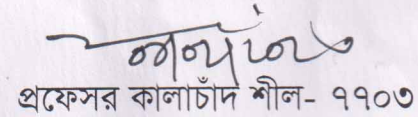 প্রফেসর কালাচাঁদ শীল- ৭৭০৩